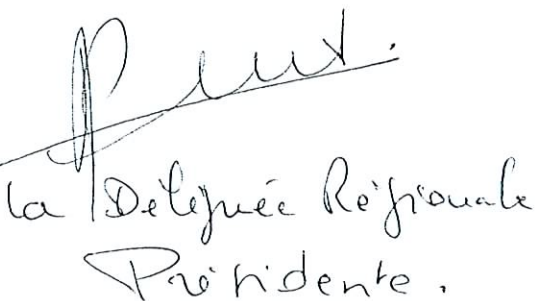 La Déléguée Régionale
Présidente.